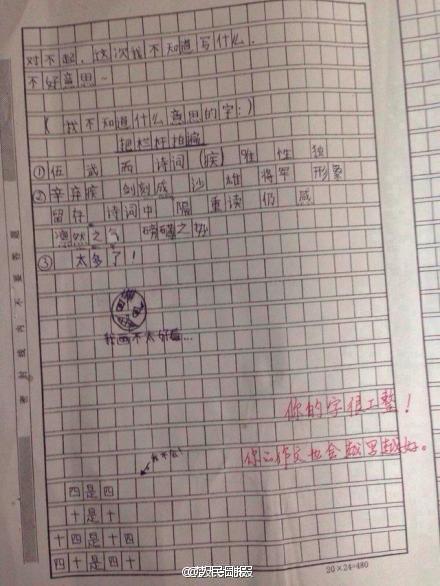 对不起，这次我不知道写什么．
不好意思~
（我不知道什么意思的字：）
把栏杆拍遍
① 伍 武 而 诗词 疾 唯 性 独
② 辛弃疾 剑刻成 沙 雄 将军 形象
留存 诗词中 隔 重读 仍 感
浩然之气 磅礴之势
③ 太多了！
我画不太好看...
你的字很工整！
你的作文也会越写越好。
四是四
十是十
十四是十四
四十是四十
20×24=480